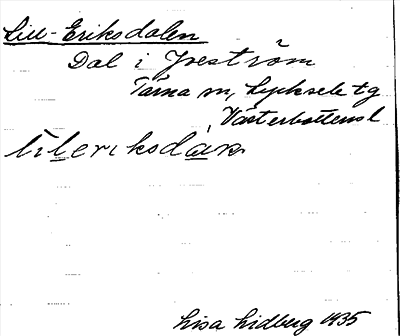 Lill-Eriksdalen
Dal i Joeström
Tärna sn, Lycksele tg
Västerbottens l
lilerіksdàn
Lisa Lidberg 1935